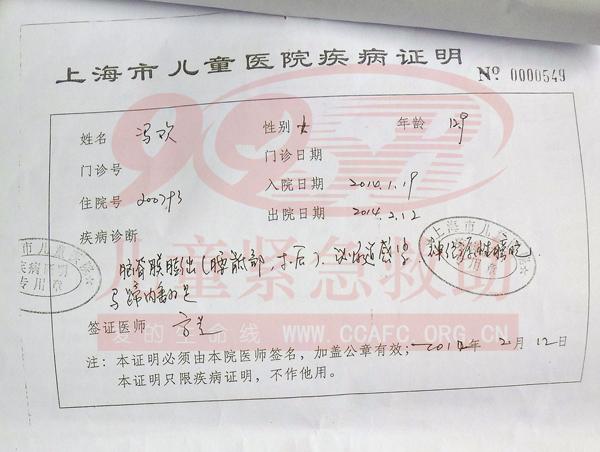 上海市儿童医院疾病证明
Nº 0000549
姓名 冯欢 性别 女 年龄 12岁
门诊号 门诊日期
住院号 200793 入院日期 2014.1.19
出院日期 2014.2.12
疾病诊断
脑脊膜膨出(腰骶部,术后)、泌尿道感染(神经源性膀胱
马蹄内翻足
签证医师
注:本证明必须由本院医师签名,加盖公章有效; 2014年2月12日
本证明只限疾病证明,不作他用。
上海市儿童医院
疾病证明
专用章
上海市儿童医院
专用章
儿童紧急救助
爱的生命线 WWW.CCAFC.ORG.CN